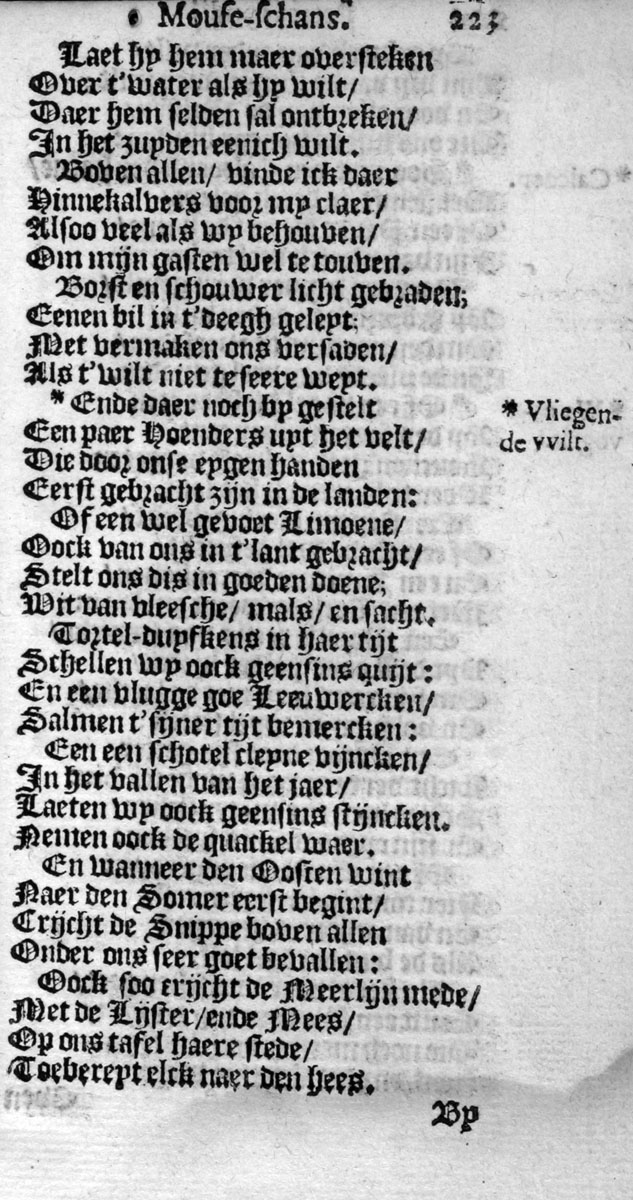 Mouse-schans. 223
Laet hy hem maer oversteken
Over t'water als hy wilt/
Daer hem selden sal ontbreken/
In het zuyden eenich wilt.
Boven allen/ vinde ick daer
Hinnekalvers voor my claer/
Alsoo veel als wy behouven/
Om mijn gasten wel te touven.
Borst en schouwer licht gebraden;
Eenen bil in t'deegh geleyt;
Met vermaken ons versaden/
Als t'wilt niet te seere weyt.
* Ende daer noch by gestelt
* Vliegen-
Een paer Hoenders uyt het velt/
de vvilt.
Die door onse eygen handen
Eerst gebracht zijn in de landen:
Of een wel gevoet Limoene/
Oock van ons in t'lant gebracht/
Stelt ons dis in goeden doene;
Wit van vleesche/ mals/ en sacht.
Tortel-duyfkens in haer tijt
Schellen wy oock geensins quijt:
En een vlugge goe Leeuwercken/
Salmen t'sijner tijt bemercken:
Een een schotel cleyne vijncken/
In het vallen van het jaer/
Laeten wy oock geensins stijncken.
Nemen oock de quackel waer.
En wanneer den Oosten wint
Naer den Somer eerst begint/
Crijcht de Snippe boven allen
Onder ons seer goet bevallen:
Oock soo crijcht de Meerlijn mede/
Met de Lijster/ende Mees/
Op ons tafel haere stede/
Toebereyt elck naer den hees.
By